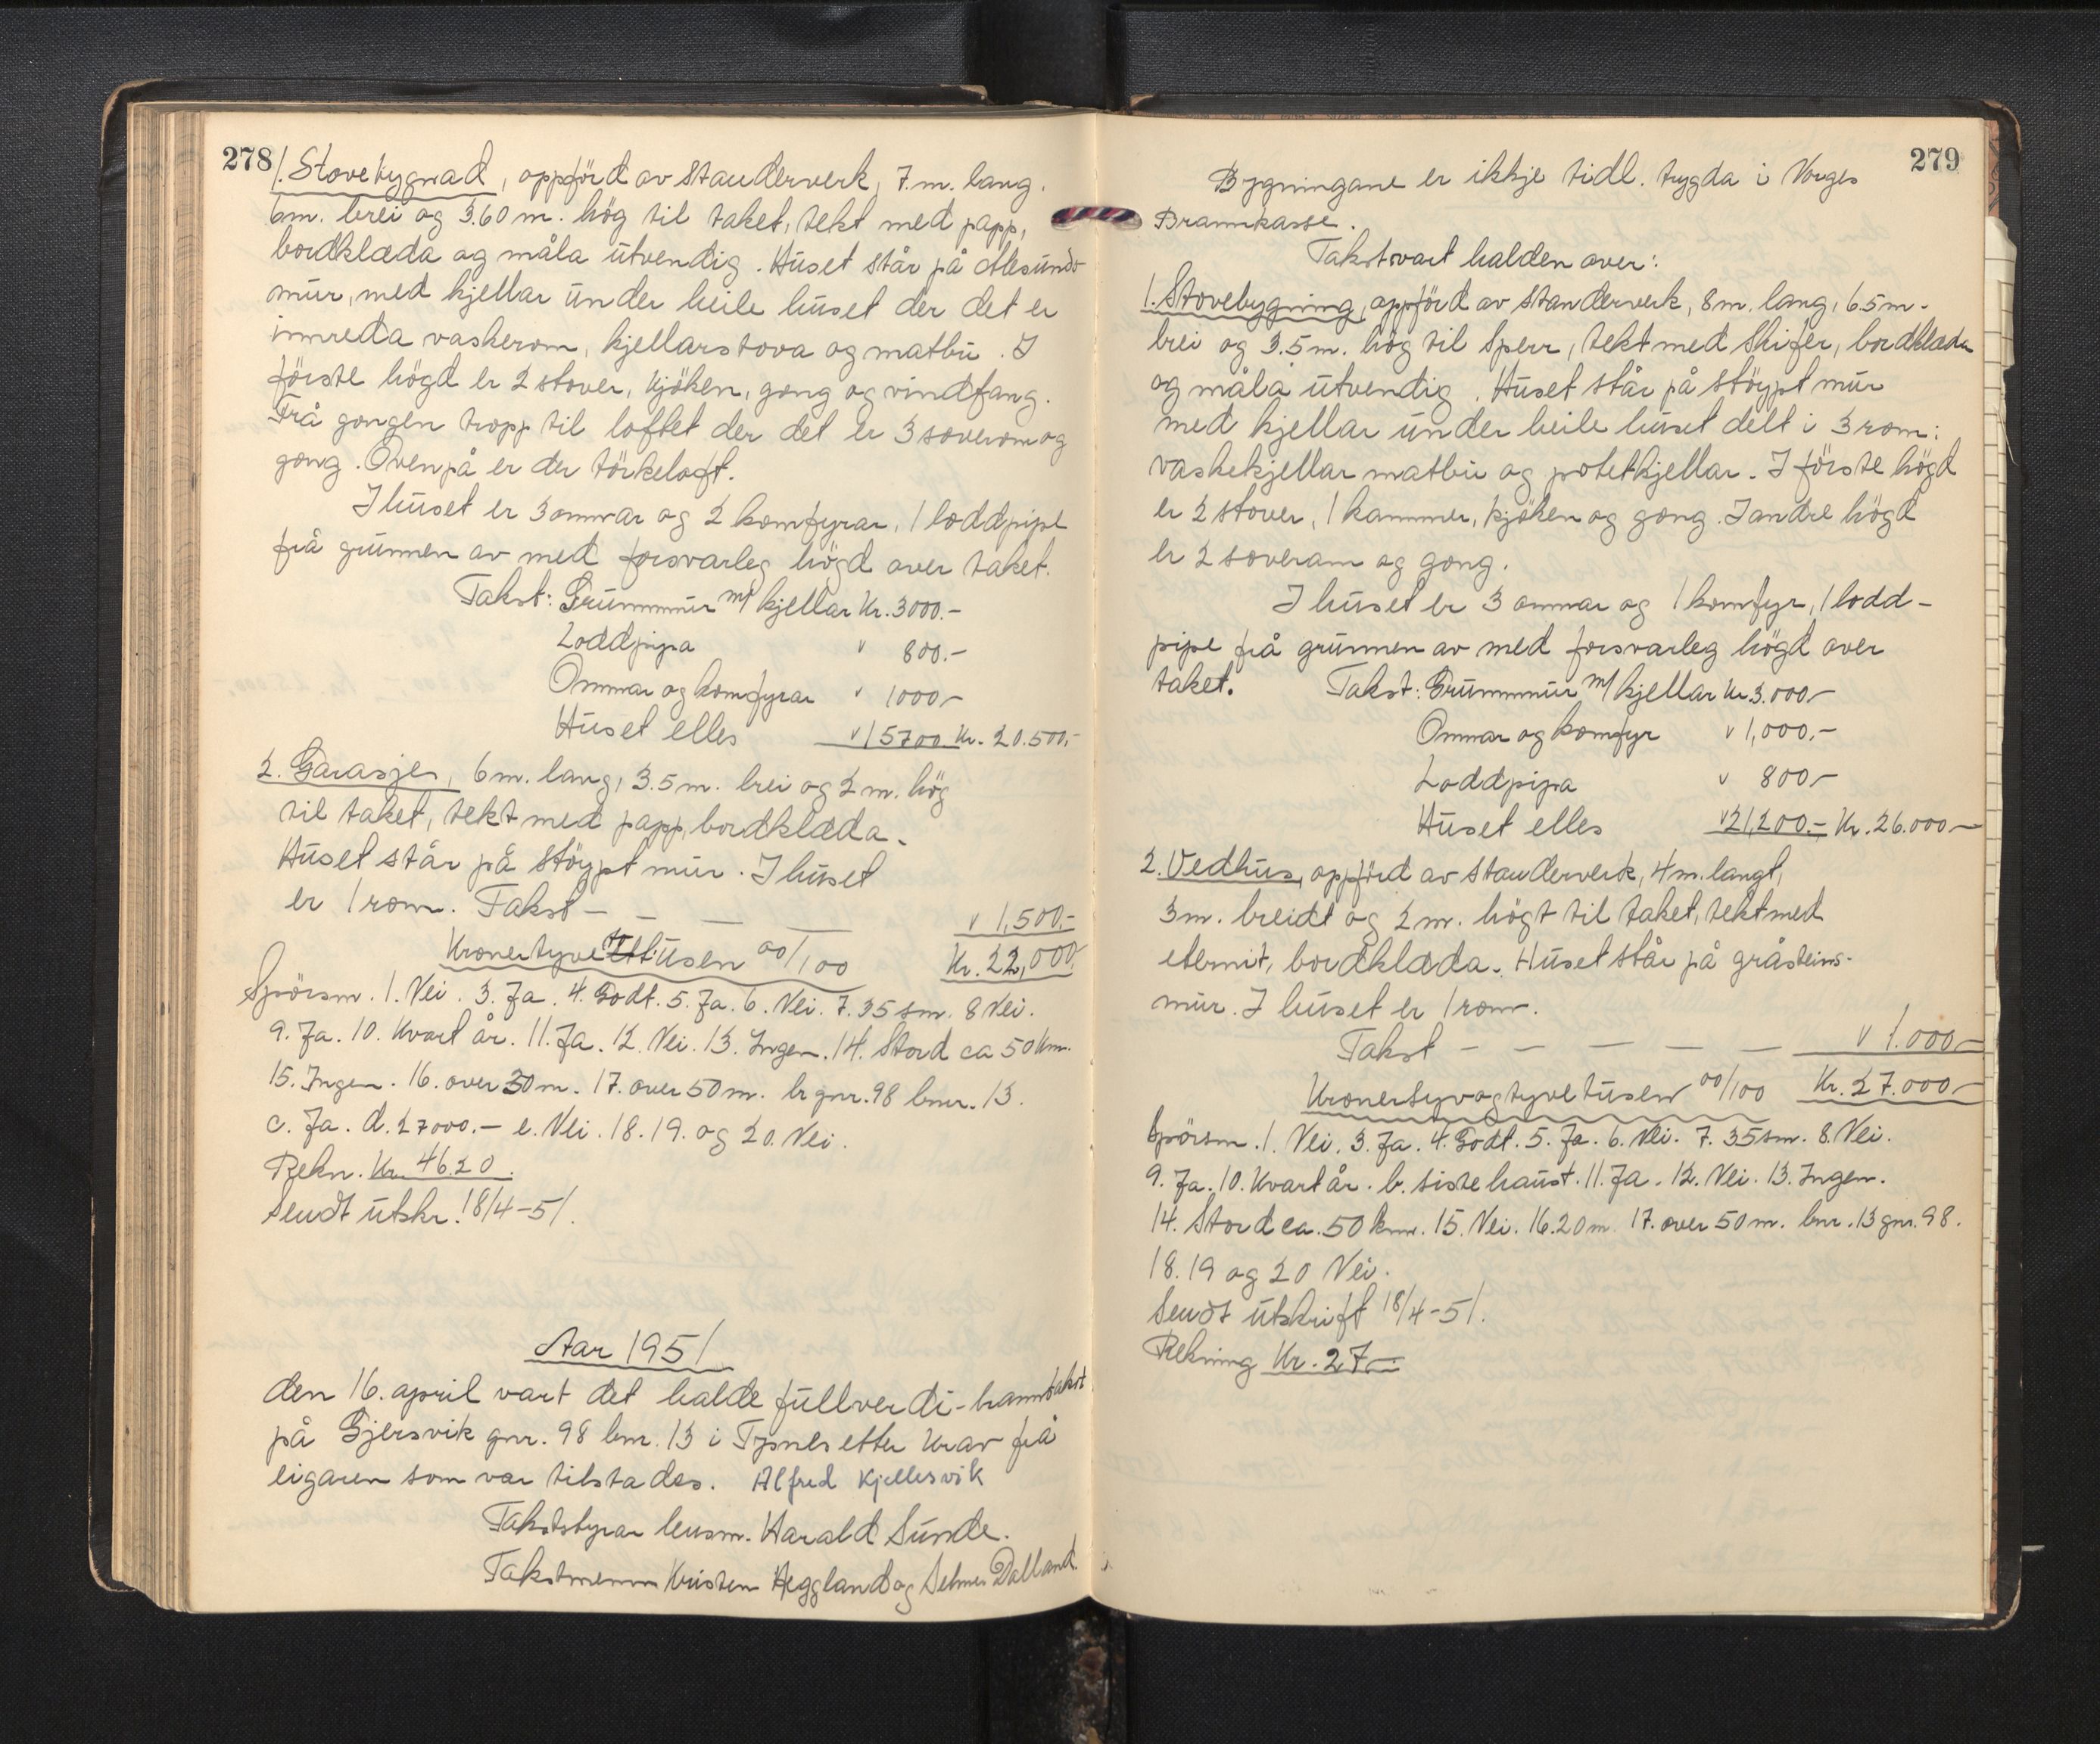 278
1. Stovebygnad, oppförd av standerverk, 7.m. lang.
6m. brei og 3.60 m. hög til taket, tekt med papp,
bordklæda og måla utvendig. Huset står på Alesunds-
mur, med kjellar under heile huset der det er
innreda vaskerom, kjellarstova og matbu. I
förste högd er 2 stover, kjöken, gong og vindfang.
Frå gongen tropp til loftet der det er 3 soverom og
gong. Ovenpå er der törkeloft.
I huset er 3 omnar og 2 komfyrar, 1 loddpipe
frå grunnen av med forsvarleg högd over taket.
Takst: Grunnmur m/ kjellar Kr. 3000.-
Loddpipa " 800.-
Omnar og komfyrar " 1000,-
Huset elles " 15700 Kr. 20.500,-
2. Garasje, 6 m. lang, 3.5 m. brei og 2 m. hög
til taket, tekt med papp, bordklæda.
Huset står på stöypt mur. I huset
er 1 rom. Takst - - - - " 1,500,-
Kroner tyvetotusen 00/100 Kr. 22,000,-
Spörsm. 1. Nei. 3. Ja. 4. Godt. 5. Ja. 6. Nei. 7. 35 sm. 8 Nei.
9. Ja. 10. Kvart år. 11. Ja. 12. Nei. 13. Ingen. 14. Stord ca 50 km.
15. Ingen. 16. over 30 m. 17. over 50 m. br gnr. 98 bnr. 13.
c. Ja. d. 27000.- e. Nei. 18. 19. og 20. Nei.
Rekn. Kr. 46.20.
Sendt utskr. 18/4-51.
Aar 1951
den 16. april vart det halde fullverdi-branntakst
på Gjersvik gnr. 98 bnr. 13 i Tysnes etter krav frå
eigaren som var tilstades. Alfred Kjellesvik
Takststyrar lensm. Harald Sunde.
Takstmenn Kristen Heggland og Selmer Dalland.
279
Bygningane er ikkje tidl. trygda i Norges
Brannkasse.
Takst vart halden over:
1. Stovebygning, oppförd av standerverk, 8 m. lang, 6.5 m.
brei og 3.5 m. hög til sperr, tekt med skifer, bordklæda
og måla utvendig. Huset står på stöypt mur
med kjellar under heile huset delt i 3 rom:
vaskekjellar matbu og potetkjellar. I förste högd
er 2 stover, 1 kammer, kjöken og gong. I andre högd
er 2 soverom og gong.
I huset er 3 omnar og 1 komfyr, 1 lodd-
pipe frå grunnen av med forsvarleg högd over
taket. Takst: Grunnmur m/ kjellar Kr 3.000,-
Omnar og komfyr " 1,000.-
Loddpipa " 800,-
Huset elles " 21,200.- Kr. 26.000,-
2. Vedhus, oppförd av standerverk, 4 m. langt,
3 m. breidt og 2 m. högt til taket, tekt med
eternit, bordklæda. Huset står på gråsteins-
mur. I huset er 1 rom.
Takst - - - - - " 1.000,-
Kroner tyvogtyvetusen 00/100 Kr. 27.000,-
Spörsm. 1. Nei. 3. Ja. 4. Godt. 5. Ja. 6. Nei. 7. 35 sm. 8. Nei.
9. Ja. 10. Kvart år. b. siste haust. 11. Ja. 12. Nei. 13. Ingen.
14. Stord ca. 50 km. 15. Nei. 16. 20 m. 17. over 50 m. bnr. 13 gnr. 98.
18. 19 og 20 Nei.
Sendt utskrift 18/4-51.
Rekning Kr. 27,-